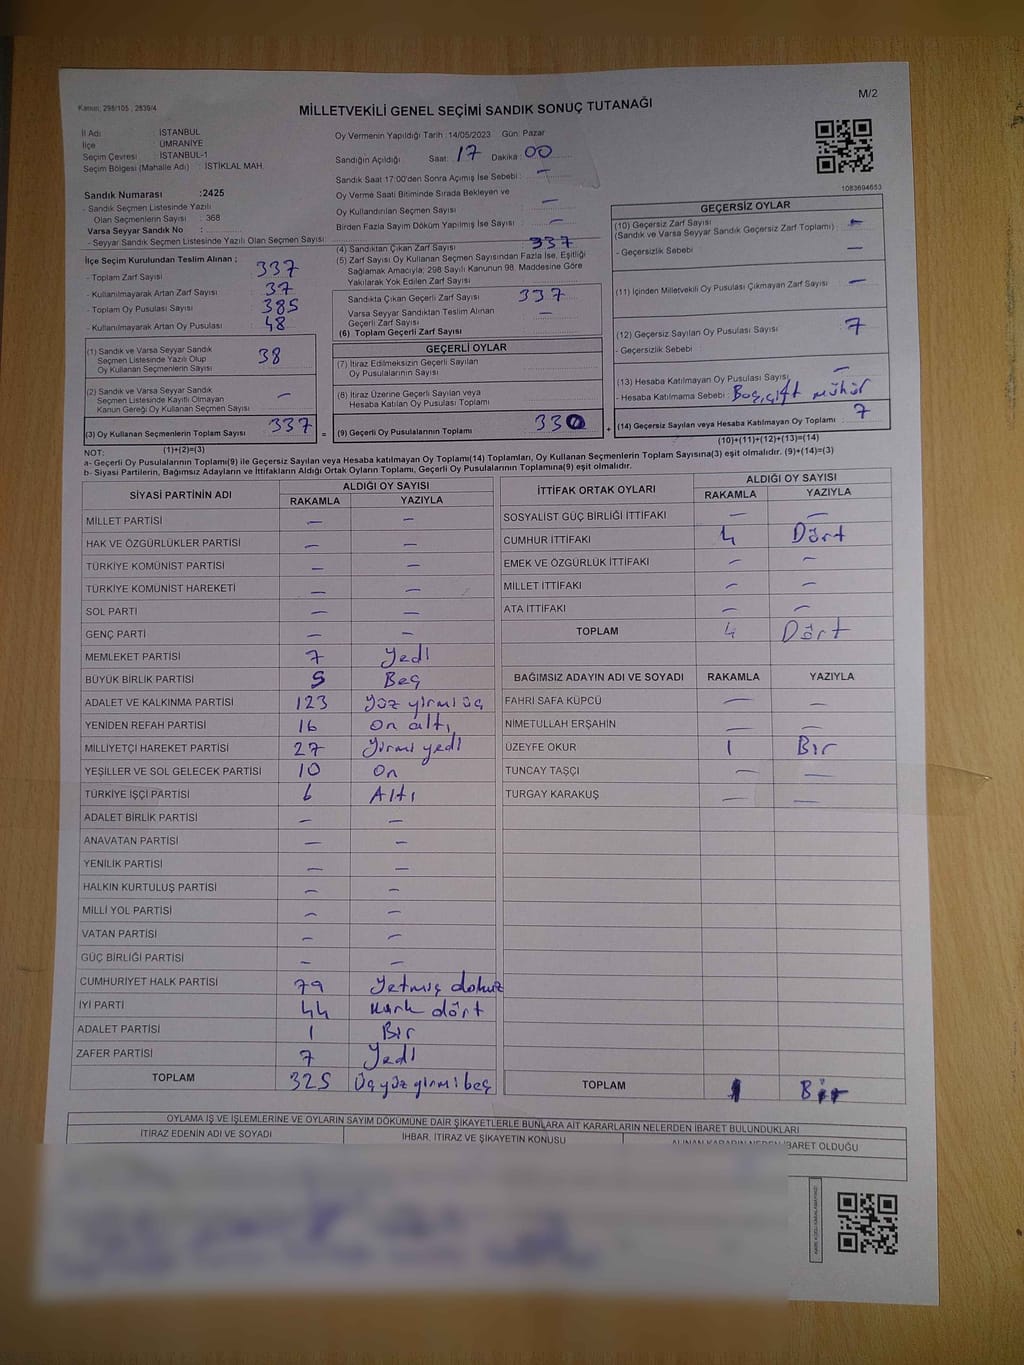 Kanun; 298/105 , 2839/4
M/2
MİLLETVEKİLİ GENEL SEÇİMİ SANDIK SONUÇ TUTANAĞI
İl Adı : İSTANBUL
İlçe : ÜMRANİYE
Seçim Çevresi : İSTANBUL-1
Seçim Bölgesi (Mahalle Adı) : İSTİKLAL MAH.
Sandık Numarası :2425
- Sandık Seçmen Listesinde Yazılı
Olan Seçmenlerin Sayısı : 368
Varsa Seyyar Sandık No :
- Seyyar Sandık Seçmen Listesinde Yazılı Olan Seçmen Sayısı
Oy Vermenin Yapıldığı Tarih : 14/05/2023 Gün Pazar
Sandığın Açıldığı Saat: 17 Dakika 00
Sandık Saat 17:00'den Sonra Açılmış İse Sebebi : —
Oy Verme Saati Bitiminde Sırada Bekleyen ve
Oy Kullandırılan Seçmen Sayısı —
Birden Fazla Sayım Döküm Yapılmış İse Sayısı : —
1083694653
İlçe Seçim Kurulundan Teslim Alınan ;
- Toplam Zarf Sayısı 337
- Kullanılmayarak Artan Zarf Sayısı 37
- Toplam Oy Pusulası Sayısı 385
- Kullanılmayarak Artan Oy Pusulası 48
(1) Sandık ve Varsa Seyyar Sandık
Seçmen Listesinde Yazılı Olup
Oy Kullanan Seçmenlerin Sayısı 38
(2) Sandık ve Varsa Seyyar Sandık
Seçmen Listesinde Kayıtlı Olmayan
Kanun Gereği Oy Kullanan Seçmen Sayısı —
(3) Oy Kullanan Seçmenlerin Toplam Sayısı 337
(4) Sandıktan Çıkan Zarf Sayısı 337
(5) Zarf Sayısı Oy Kullanan Seçmen Sayısından Fazla İse, Eşitliği
Sağlamak Amacıyla; 298 Sayılı Kanunun 98. Maddesine Göre
Yakılarak Yok Edilen Zarf Sayısı
Sandıkta Çıkan Geçerli Zarf Sayısı 337
Varsa Seyyar Sandıktan Teslim Alınan
Geçerli Zarf Sayısı —
(6) Toplam Geçerli Zarf Sayısı
GEÇERLİ OYLAR
(7) İtiraz Edilmeksizin Geçerli Sayılan
Oy Pusulalarının Sayısı
(8) İtiraz Üzerine Geçerli Sayılan veya
Hesaba Katılan Oy Pusulası Toplamı
= (9) Geçerli Oy Pusulalarının Toplamı 330 +
GEÇERSİZ OYLAR
(10) Geçersiz Zarf Sayısı —
(Sandık ve Varsa Seyyar Sandık Geçersiz Zarf Toplamı) :
- Geçersizlik Sebebi —
(11) İçinden Milletvekili Oy Pusulası Çıkmayan Zarf Sayısı —
(12) Geçersiz Sayılan Oy Pusulası Sayısı 7
- Geçersizlik Sebebi :
(13) Hesaba Katılmayan Oy Pusulası Sayısı —
- Hesaba Katılmama Sebebi : Boş, çift mühür
(14) Geçersiz Sayılan veya Hesaba Katılmayan Oy Toplamı 7
NOT: (1)+(2)=(3)
(10)+(11)+(12)+(13)=(14)
a- Geçerli Oy Pusulalarının Toplamı(9) ile Geçersiz Sayılan veya Hesaba Katılmayan Oy Toplamı(14) Toplamları, Oy Kullanan Seçmenlerin Toplam Sayısına(3) eşit olmalıdır. (9)+(14)=(3)
b- Siyasi Partilerin, Bağımsız Adayların ve İttifakların Aldığı Ortak Oyların Toplamı, Geçerli Oy Pusulalarının Toplamına(9) eşit olmalıdır.
SİYASİ PARTİNİN ADI ALDIĞI OY SAYISI
RAKAMLA YAZIYLA
MİLLET PARTİSİ — —
HAK VE ÖZGÜRLÜKLER PARTİSİ — —
TÜRKİYE KOMÜNİST PARTİSİ — —
TÜRKİYE KOMÜNİST HAREKETİ — —
SOL PARTİ — —
GENÇ PARTİ — —
MEMLEKET PARTİSİ 7 Yedi
BÜYÜK BİRLİK PARTİSİ 5 Beş
ADALET VE KALKINMA PARTİSİ 123 Yüz yirmi üç
YENİDEN REFAH PARTİSİ 16 On altı
MİLLİYETÇİ HAREKET PARTİSİ 27 Yirmi yedi
YEŞİLLER VE SOL GELECEK PARTİSİ 10 On
TÜRKİYE İŞÇİ PARTİSİ 6 Altı
ADALET BİRLİK PARTİSİ — —
ANAVATAN PARTİSİ — —
YENİLİK PARTİSİ — —
HALKIN KURTULUŞ PARTİSİ — —
MİLLİ YOL PARTİSİ — —
VATAN PARTİSİ — —
GÜÇ BİRLİĞİ PARTİSİ — —
CUMHURİYET HALK PARTİSİ 79 Yetmiş dokuz
İYİ PARTİ 44 Kırk dört
ADALET PARTİSİ 1 Bir
ZAFER PARTİSİ 7 Yedi
TOPLAM 325 Üç yüz yirmi beş
İTTİFAK ORTAK OYLARI ALDIĞI OY SAYISI
RAKAMLA YAZIYLA
SOSYALİST GÜÇ BİRLİĞİ İTTİFAKI — —
CUMHUR İTTİFAKI 4 Dört
EMEK VE ÖZGÜRLÜK İTTİFAKI — —
MİLLET İTTİFAKI — —
ATA İTTİFAKI — —
TOPLAM 4 Dört
BAĞIMSIZ ADAYIN ADI VE SOYADI RAKAMLA YAZIYLA
FAHRİ SAFA KÜPCÜ — —
NİMETULLAH ERŞAHİN — —
ÜZEYFE OKUR 1 Bir
TUNCAY TAŞÇI — —
TURGAY KARAKUŞ — —
TOPLAM 1 Bir
OYLAMA İŞ VE İŞLEMLERİNE VE OYLARIN SAYIM DÖKÜMÜNE DAİR ŞİKAYETLERLE BUNLARA AİT KARARLARIN NELERDEN İBARET BULUNDUKLARI
İTİRAZ EDENİN ADI VE SOYADI İHBAR, İTİRAZ VE ŞİKAYETİN KONUSU ALINAN KARARIN NEDEN İBARET OLDUĞU